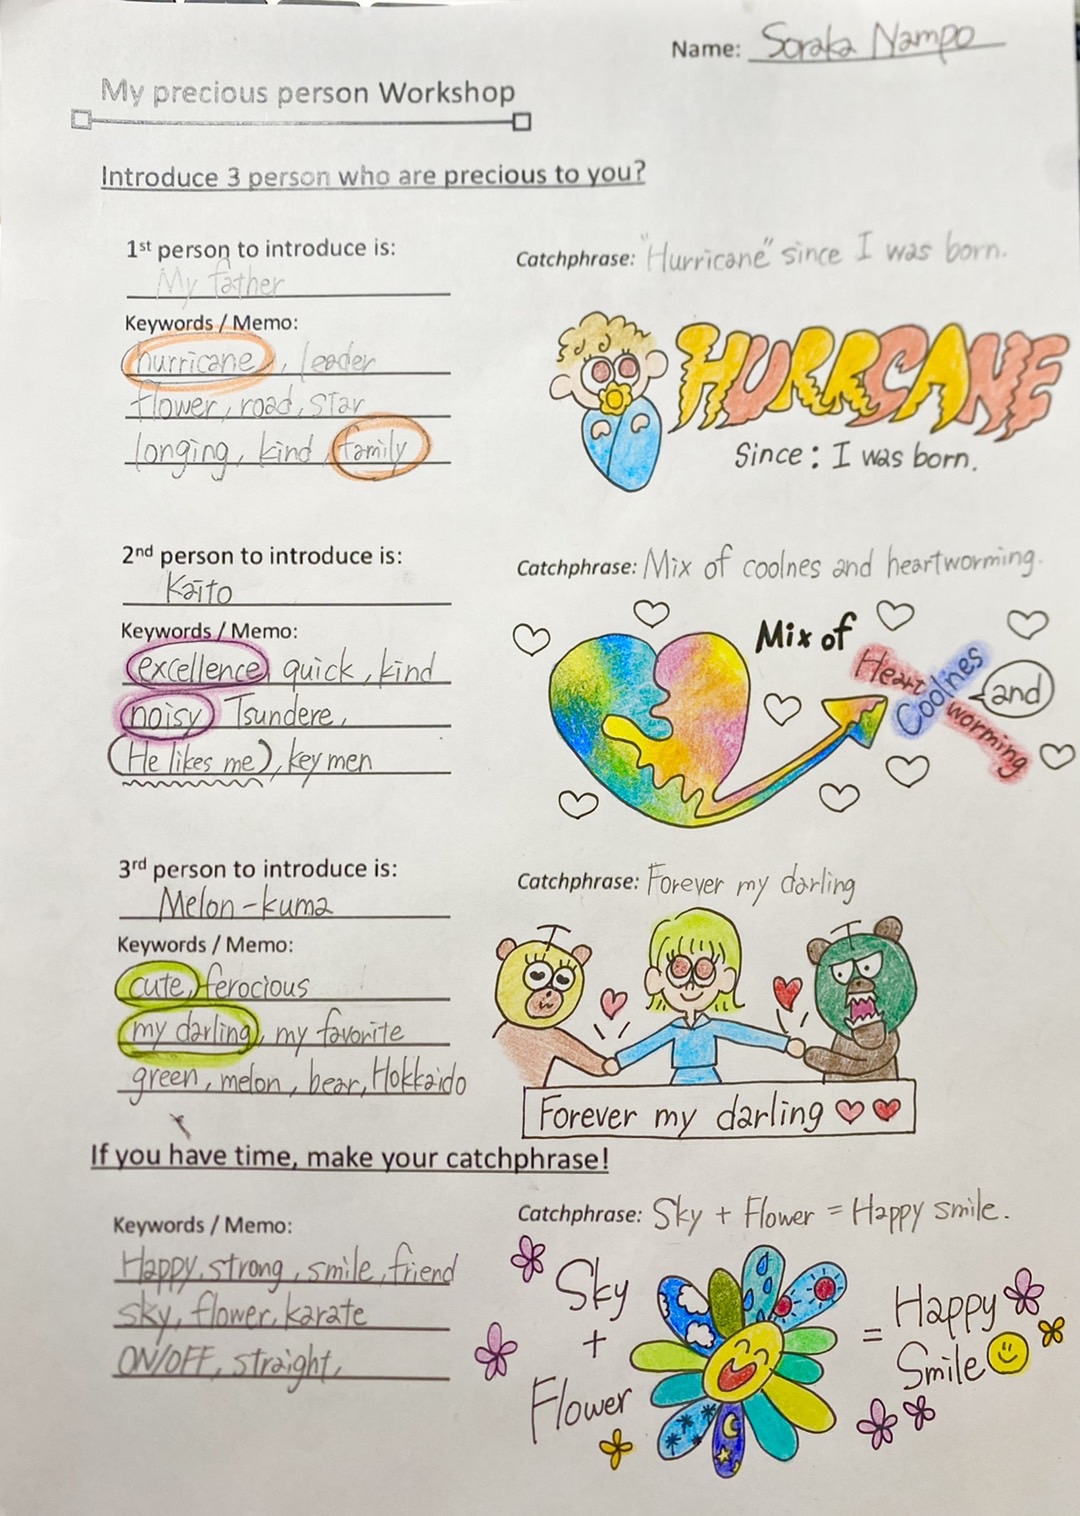 Name: Soraka Nampo
My precious person Workshop
Introduce 3 person who are precious to you?
1st person to introduce is:
My father
Keywords / Memo:
hurricane, leader
flower, road, star
longing, kind, family
Catchphrase: "Hurricane" since I was born.
HURRCANE
Since: I was born.
2nd person to introduce is:
Kaito
Keywords / Memo:
excellence, quick, kind
noisy, Tsundere,
(He likes me), key men
Catchphrase: Mix of coolnes and heartworming.
Mix of
Heart
worming
Coolnes
and
3rd person to introduce is:
Melon-kuma
Keywords / Memo:
cute, ferocious
my darling, my favorite
green, melon, bear, Hokkaido
Catchphrase: Forever my darling
Forever my darling
If you have time, make your catchphrase!
Keywords / Memo:
Happy, strong, smile, friend
sky, flower, karate
ON/OFF, straight,
Catchphrase: Sky + Flower = Happy smile.
Sky
+
Flower
= Happy
Smile